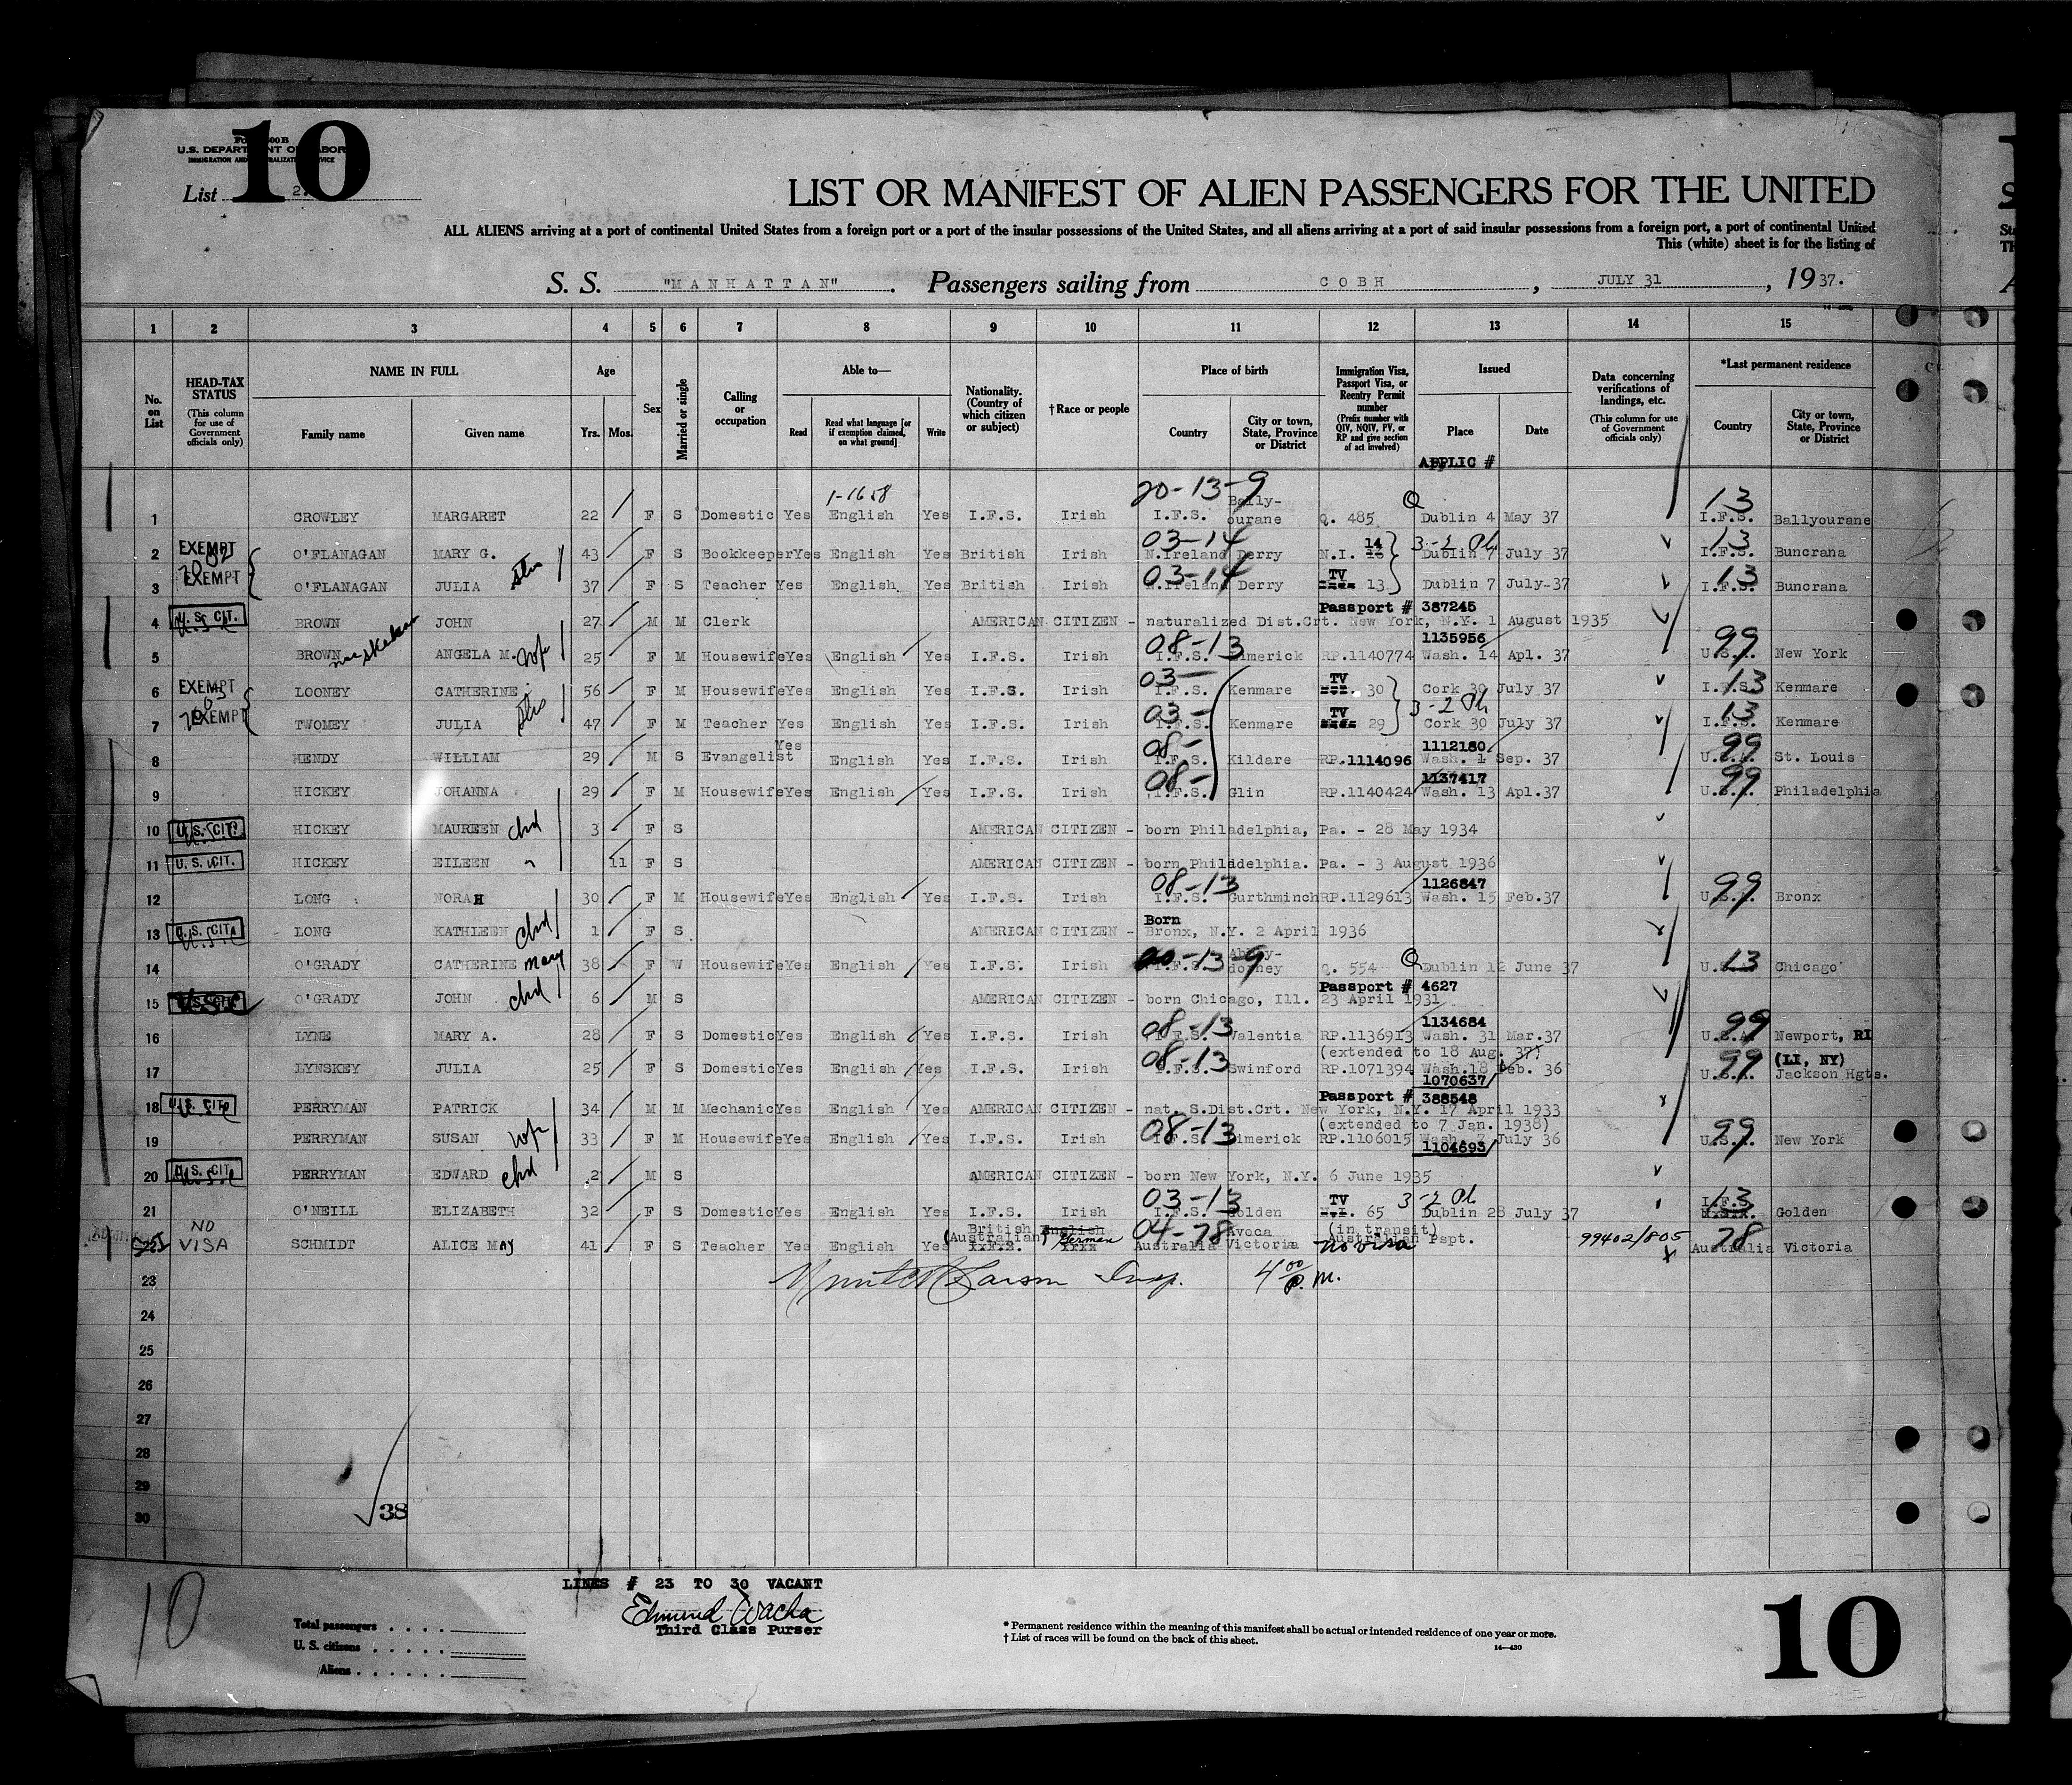 10
U.S. DEPARTMENT OF LABOR
IMMIGRATION AND NATURALIZATION SERVICE
List 2
LIST OR MANIFEST OF ALIEN PASSENGERS FOR THE UNITED
ALL ALIENS arriving at a port of continental United States from a foreign port or a port of the insular possessions of the United States, and all aliens arriving at a port of said insular possessions from a foreign port, a port of continental United
This (white) sheet is for the listing of
S. S. "MANHATTAN". Passengers sailing from COBH, JULY 31, 1937.
1 2 3 4 5 6 7 8 9 10 11 12 13 14 15
No. on List
HEAD-TAX STATUS (This column for use of Government officials only)
NAME IN FULL Family name Given name
Age Yrs. Mos.
Sex
Married or single
Calling or occupation
Able to— Read Read what language [or if exemption claimed, on what ground] Write
Nationality. (Country of which citizen or subject)
†Race or people
Place of birth Country City or town, State, Province or District
Immigration Visa, Passport Visa, or Reentry Permit number (Prefix number with QIV, NQIV, PV, or RP and give section of act involved)
Issued Place Date
APPLIC #
Data concerning verifications of landings, etc. (This column for use of Government officials only)
*Last permanent residence Country City or town, State, Province or District
1-1658 20-13-9 Bally- Q 13
1 CROWLEY MARGARET 22 F S Domestic Yes English Yes I.F.S. Irish I.F.S. ourane Q. 485 Dublin 4 May 37 I.F.S. Ballyourane
EXEMPT 03-14 14 3-2 Ph 13
2 O'FLANAGAN MARY G. 43 F S Bookkeeper Yes English Yes British Irish N.Ireland Derry N.I. Dublin 7 July 37 I.F.S. Buncrana
EXEMPT 03-14 TV 13
3 O'FLANAGAN JULIA 37 F S Teacher Yes English Yes British Irish N.Ireland Derry 13 Dublin 7 July-37 I.F.S. Buncrana
U.S. CIT. Passport # 387245
4 BROWN JOHN 27 M M Clerk AMERICAN CITIZEN - naturalized Dist.Crt. New York, N.Y. 1 August 1935
wf 08-13 1135956 99
5 BROWN ANGELA M. 25 F M Housewife Yes English Yes I.F.S. Irish I.F.S. Limerick RP.1140774 Wash. 14 Apl. 37 U.S.A. New York
EXEMPT 03- TV 13
6 LOONEY CATHERINE 56 F M Housewife Yes English Yes I.F.S. Irish I.F.S. Kenmare 30 Cork 30 July 37 I.F.S. Kenmare
EXEMPT 03- TV 3-2 Ph 13
7 TWOMEY JULIA 47 F M Teacher Yes English Yes I.F.S. Irish I.F.S. Kenmare 29 Cork 30 July 37 I.F.S. Kenmare
08- 1112180 99
8 HENDY WILLIAM 29 M S Evangelist Yes English Yes I.F.S. Irish I.F.S. Kildare RP.1114096 Wash. 1 Sep. 37 U.S.A. St. Louis
08- 1137417 99
9 HICKEY JOHANNA 29 F M Housewife Yes English Yes I.F.S. Irish I.F.S. Glin RP.1140424 Wash. 13 Apl.37 U.S.A. Philadelphia
10 U.S. CIT. HICKEY MAUREEN chd 3 F S AMERICAN CITIZEN - born Philadelphia, Pa. - 28 May 1934
11 U.S. CIT. HICKEY EILEEN " 11 F S AMERICAN CITIZEN - born Philadelphia. Pa. - 3 August 1936
08-13 1126847 99
12 LONG NORAH 30 F M Housewife Yes English Yes I.F.S. Irish I.F.S. Gurthminch RP.1129613 Wash. 15 Feb.37 U.S.A. Bronx
Born
13 U.S. CIT. LONG KATHLEEN chd 1 F S AMERICAN CITIZEN - Bronx, N.Y. 2 April 1936
20-13-9 Abbey- Q 13
14 O'GRADY CATHERINE Mary 38 F W Housewife Yes English Yes I.F.S. Irish I.F.S. dorney Q. 554 Dublin 12 June 37 U.S. Chicago
Passport # 4627
15 U.S.C O'GRADY JOHN chd 6 M S AMERICAN CITIZEN - born Chicago, Ill. 23 April 1931
08-13 1134684 99
16 LYNE MARY A. 28 F S Domestic Yes English Yes I.F.S. Irish I.F.S. Valentia RP.1136913 Wash. 31 Mar.37 U.S.A. Newport, RI
08-13 (extended to 18 Aug. 37) 99 (LI, NY)
17 LYNSKEY JULIA 25 F S Domestic Yes English Yes I.F.S. Irish I.F.S. Swinford RP.1071394 Wash.18 Feb. 36 U.S.A. Jackson Hgts.
1070637
Passport # 388548
18 U.S. CIT. PERRYMAN PATRICK 34 M M Mechanic Yes English Yes AMERICAN CITIZEN - nat. S.Dist.Crt. New York, N.Y. 17 April 1933
wf 08-13 (extended to 7 Jan. 1938) 99
19 PERRYMAN SUSAN 33 F M Housewife Yes English Yes I.F.S. Irish I.F.S. Limerick RP.1106015 Wash. 7 July 36 U.S.A. New York
1104693
20 U.S. CIT. PERRYMAN EDWARD chd 2 M S AMERICAN CITIZEN - born New York, N.Y. 6 June 1935
03-13 TV 3-2 Ph 13 I.F.S.
21 O'NEILL ELIZABETH 32 F S Domestic Yes English Yes I.F.S. Irish I.F.S. Golden 65 Dublin 28 July 37 Golden
NO VISA British (Australian) English German 04-78 Avoca (in transit) no visa 99402/805 78
SCHMIDT ALICE MAY 41 F S Teacher Yes English Yes I.F.S. Australia Victoria Australian Pspt. Australia Victoria
23 Larson Insp. 4 00 P.M.
24
25
26
27
28
29
30
38
LINES # 23 TO 30 VACANT
Edmund Wacha
Third Class Purser
10
Total passengers
U. S. citizens
Aliens
* Permanent residence within the meaning of this manifest shall be actual or intended residence of one year or more.
† List of races will be found on the back of this sheet.
14—430
10